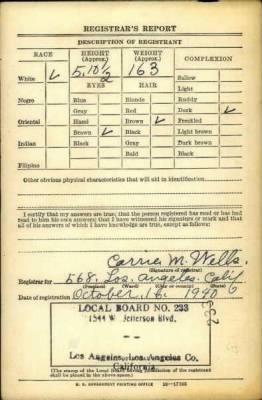 REGISTRAR'S REPORT
DESCRIPTION OF REGISTRANT
RACE HEIGHT (Approx.) WEIGHT (Approx.) COMPLEXION
White ✓ 5, 10 1/2 163 Sallow
EYES HAIR Light
Negro Blue Blonde Ruddy
Gray Red Dark ✓
Oriental Hazel Brown ✓ Freckled
Brown ✓ Black Light brown
Indian Black Gray Dark brown
Bald Black
Filipino
Other obvious physical characteristics that will aid in identification
I certify that my answers are true; that the person registered has read or has had
read to him his own answers; that I have witnessed his signature or mark and that
all of his answers of which I have knowledge are true, except as follows:
Carrie M. Wells
(Signature of registrar)
Registrar for 568 Los Angeles Calif
(Precinct) (Ward) (City or county) (State)
Date of registration October 16, 1940
LOCAL BOARD NO. 233
1544 W Jefferson Blvd.
Los Angeles, Los Angeles Co.
California
(The stamp of the Local Board having jurisdiction of the registrant
shall be placed in the above space)
U. S. GOVERNMENT PRINTING OFFICE